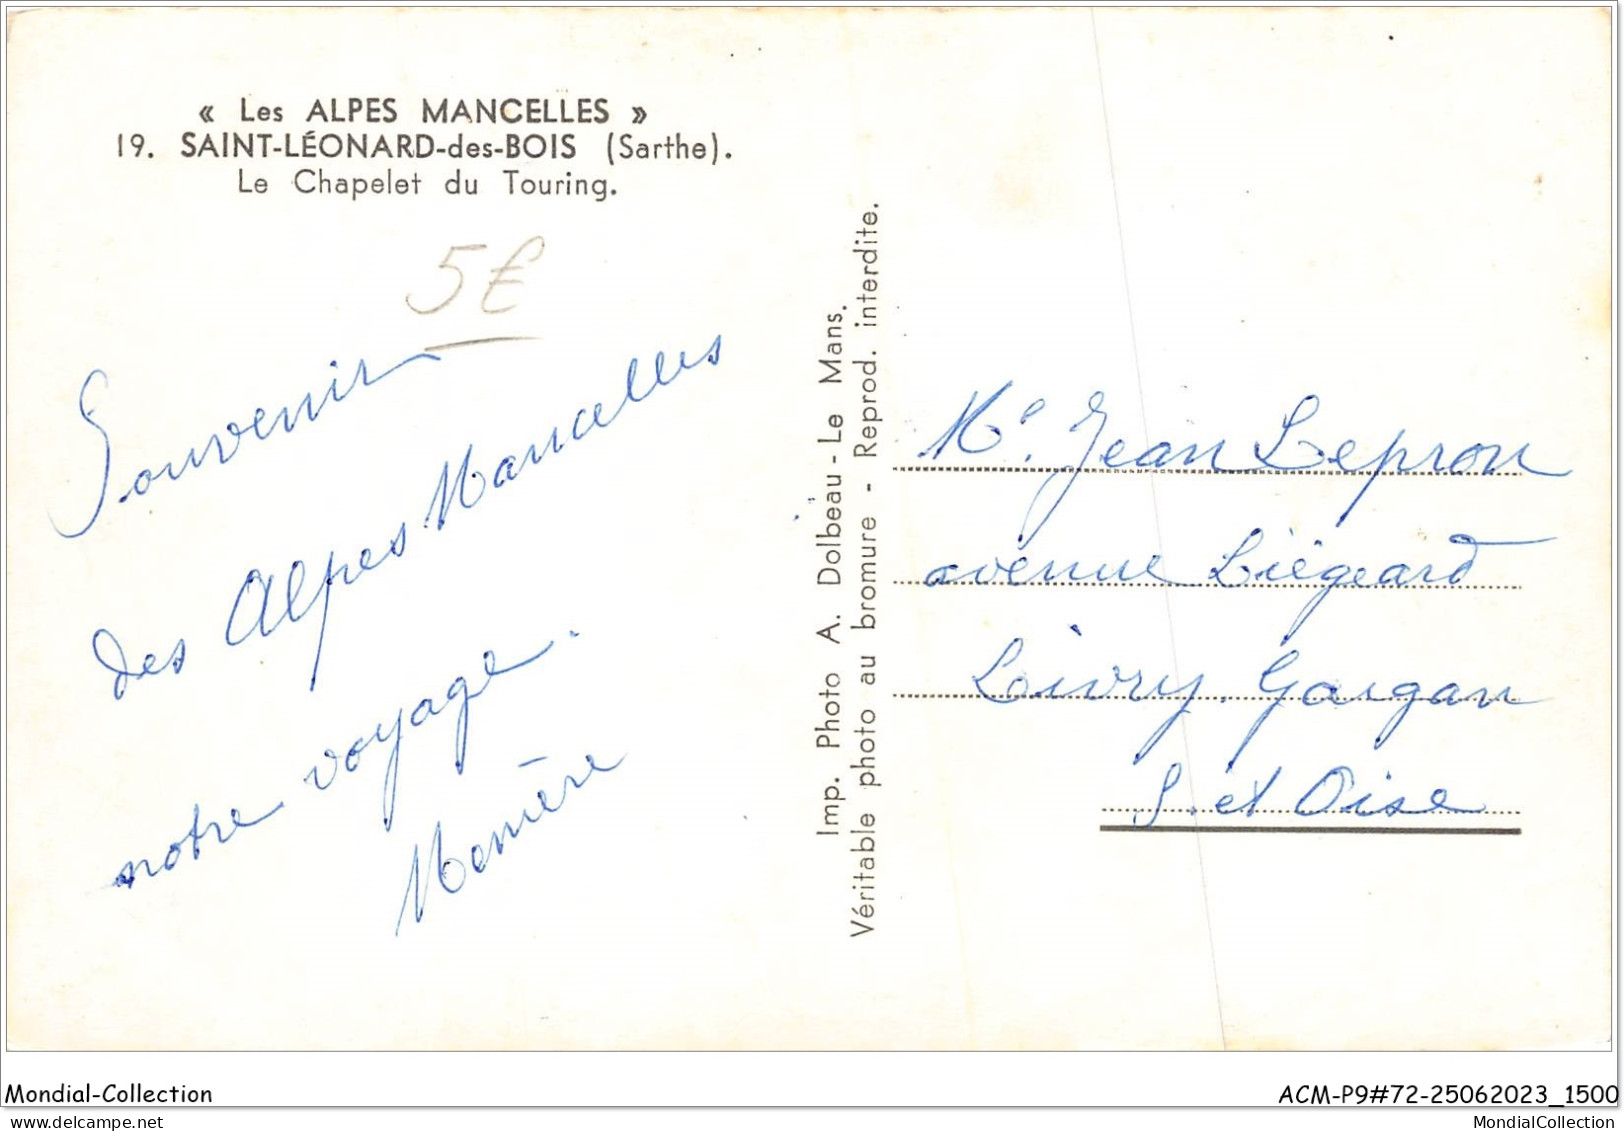 « Les ALPES MANCELLES »
19. SAINT-LÉONARD-des-BOIS (Sarthe).
Le Chapelet du Touring.
5€
Souvenir
des Alpes Mancelles
notre voyage.
Memère
Imp. Photo A. Dolbeau - Le Mans.
Véritable photo au bromure - Reprod. interdite.
Me. Jean Lepron
avenue Liégeard
Livry. Gargan
S. et Oise
Mondial-Collection
ACM-P9#72-25062023_1500
MondialCollection